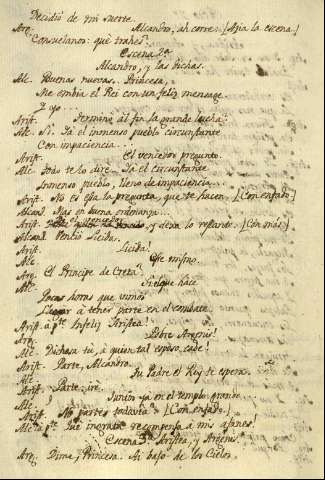 Decidió de mi suerte.
Arg. Alcandro, ah corre: [Fija la escena.]
Consuelanos: què trahes?
Escena 2ª
Alcandro, y las dichas.
Alc. Buenas nuevas. Princesa,
Me embia el Rei con un feliz mensage.
Y yo
Arist. Terminó al fin la grande lucha?
Alc. Sì. Yá el inmenso pueblo circunstante
Con impaciencia
Arist. El vencedor pregunto.
Alc. Todo te lo dirè. Yá el circunstante
Inmenso pueblo, lleno de impaciencia
Arist. No es esta la pregunta, que te hacen. [Con enfado.]
Alcand. Mas en buena ordenanza
Arist. y dexa lo restante. [Con más]
Alcand. Venciò Licida.
Arist. Licida!
Alc. Ese mismo.
Arg. El Principe de Creta?
Alc. Sí, el que hace
Pocas horas que vino
Llegar á tener parte en el combate.
Arist. á pte. Infeliz Aristea!
Arg. Pobre Argene!
Alc. Dichosa tú, á quien tal esposo cabe!
Arist. Parte, Alcandro.
Alc. Tu Padre el Rey te espera.
Arist. Parte: iré.
Alc. Juntos yá en el templo grande
Arist. No partes todavia? [Con enfado.]
Alc. á pte. Què ingrata recompensa á mis afanes!
Escena 3ª Aristea, y Argene.
Arg. Dime, Princesa. Ai bajo de los Cielos